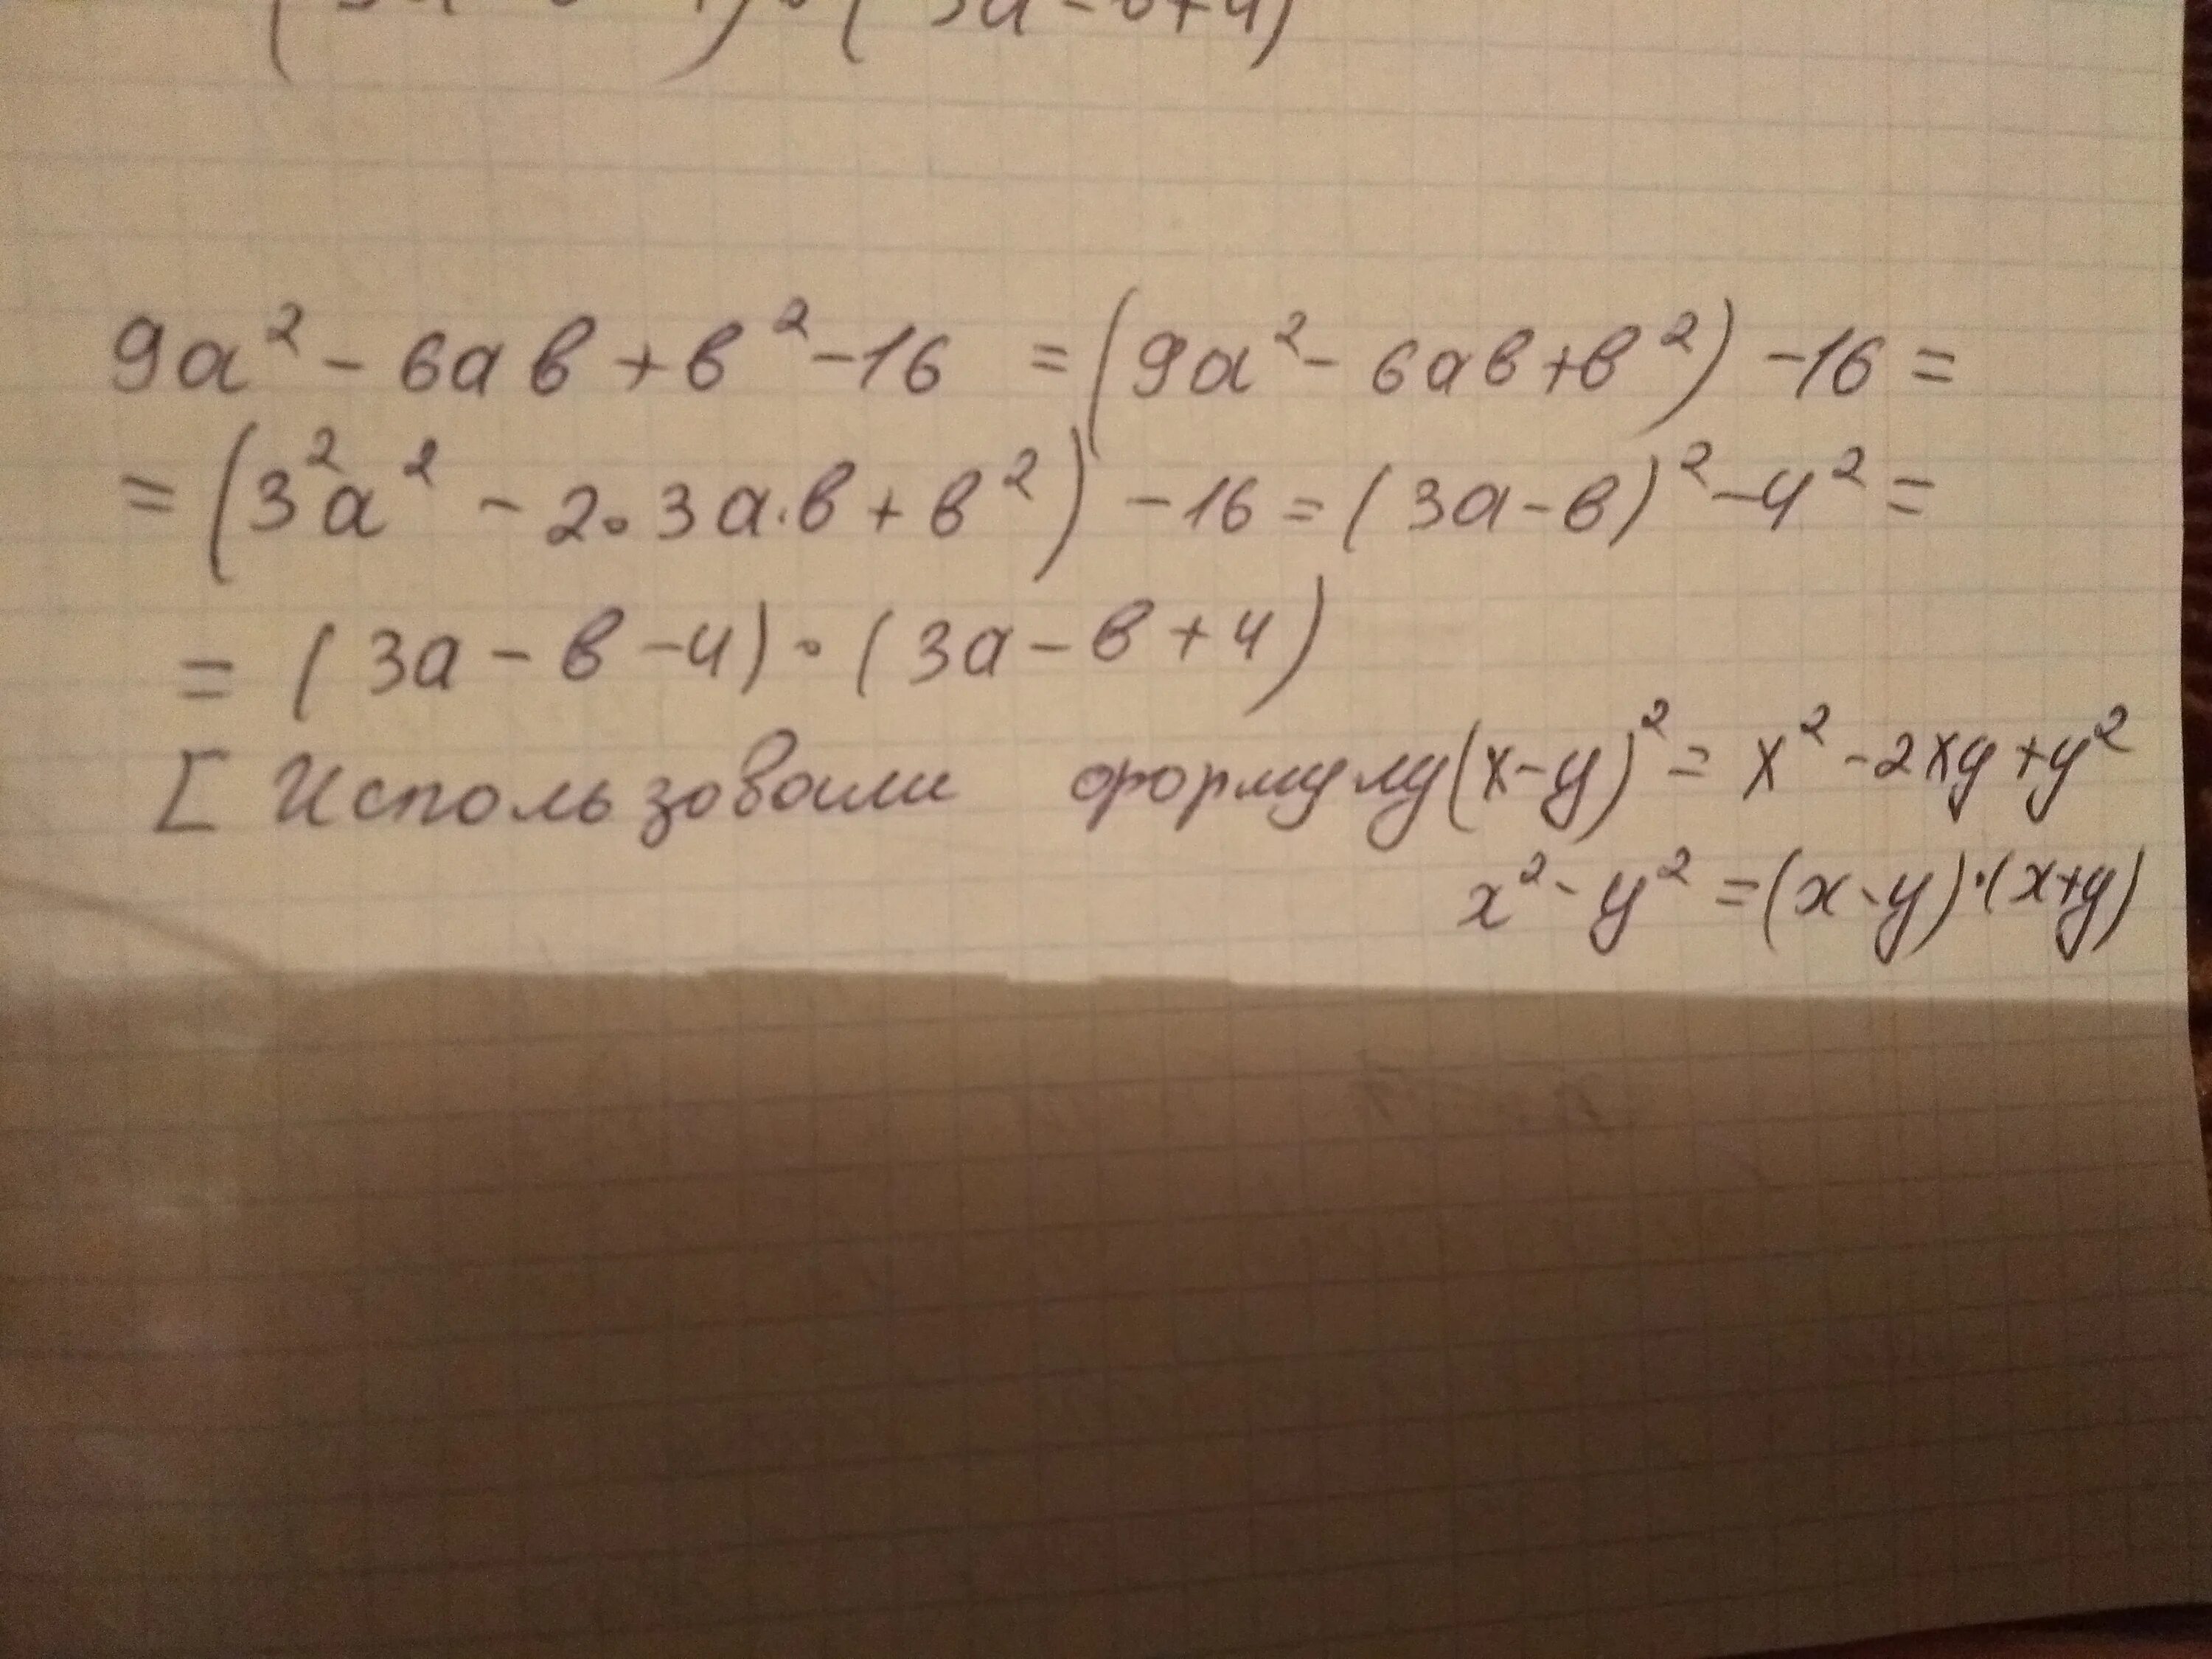 3a - в + 4)
9a² - 6aв + в² - 16 = (9a² - 6aв + в²) - 16 =
= (3²a² - 2 · 3a · в + в²) - 16 = (3a - в)² - 4² =
= (3a - в - 4) · (3a - в + 4)
[ Использовали формулу (x - y)² = x² - 2xy + y²
x² - y² = (x - y) · (x + y)